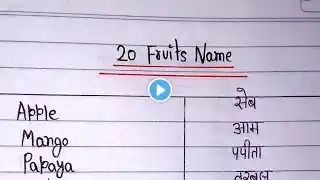 20 Fruits Name
Apple सेब
Mango आम
Papaya पपीता
तरबूज